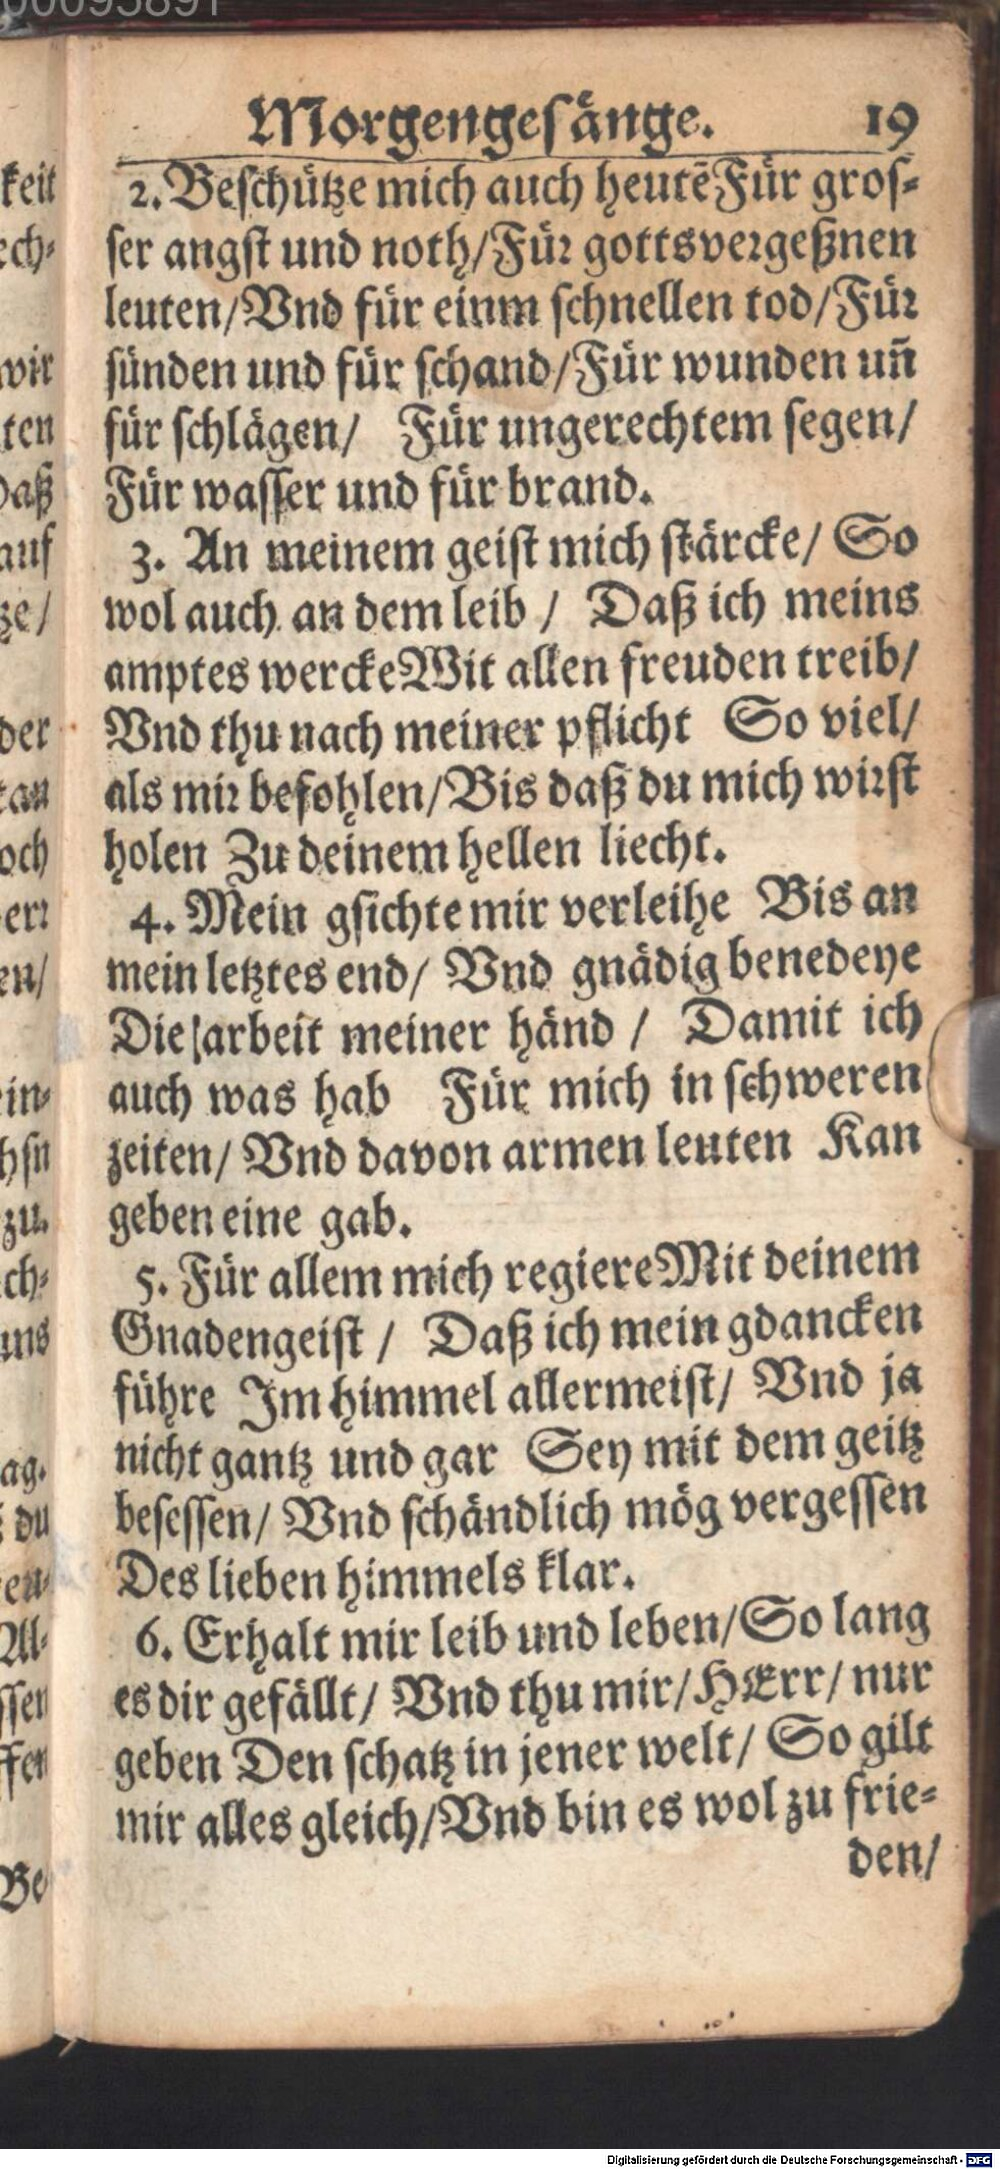 00095891
Morgengesänge. 19
2. Beschütze mich auch heutẽ Für gros-
ser angst und noth/ Für gottsvergeßnen
leuten/ Vnd für einm schnellen tod/ Für
sünden und für schand/ Für wunden uñ
für schlägen/ Für ungerechtem segen/
Für wasser und für brand.
3. An meinem geist mich stärcke/ So
wol auch an dem leib / Daß ich meins
amptes wercke Mit allen freuden treib/
Vnd thu nach meiner pflicht So viel/
als mir befohlen/ Bis daß du mich wirst
holen Zu deinem hellen liecht.
4. Mein gsichte mir verleihe Bis an
mein letztes end/ Vnd gnädig benedeye
Die arbeit meiner händ / Damit ich
auch was hab Für mich in schweren
zeiten/ Vnd davon armen leuten Kan
geben eine gab.
5. Für allem mich regiere Mit deinem
Gnadengeist / Daß ich mein gdancken
führe Im himmel allermeist/ Vnd ja
nicht gantz und gar Sey mit dem geitz
besessen/ Vnd schändlich mög vergessen
Des lieben himmels klar.
6. Erhalt mir leib und leben/ So lang
es dir gefällt/ Vnd thu mir/ HErr/ nur
geben Den schatz in jener welt/ So gilt
mir alles gleich/ Vnd bin es wol zu frie-
den/
keit
ech-
wir
ten
daß
auf
ze/
der
tan
och
err
en/
ein-
hsn
zu.
ch-
uns
ag.
du
en-
Al-
ssen
ffen
Be
Digitalisierung gefördert durch die Deutsche Forschungsgemeinschaft - DFG